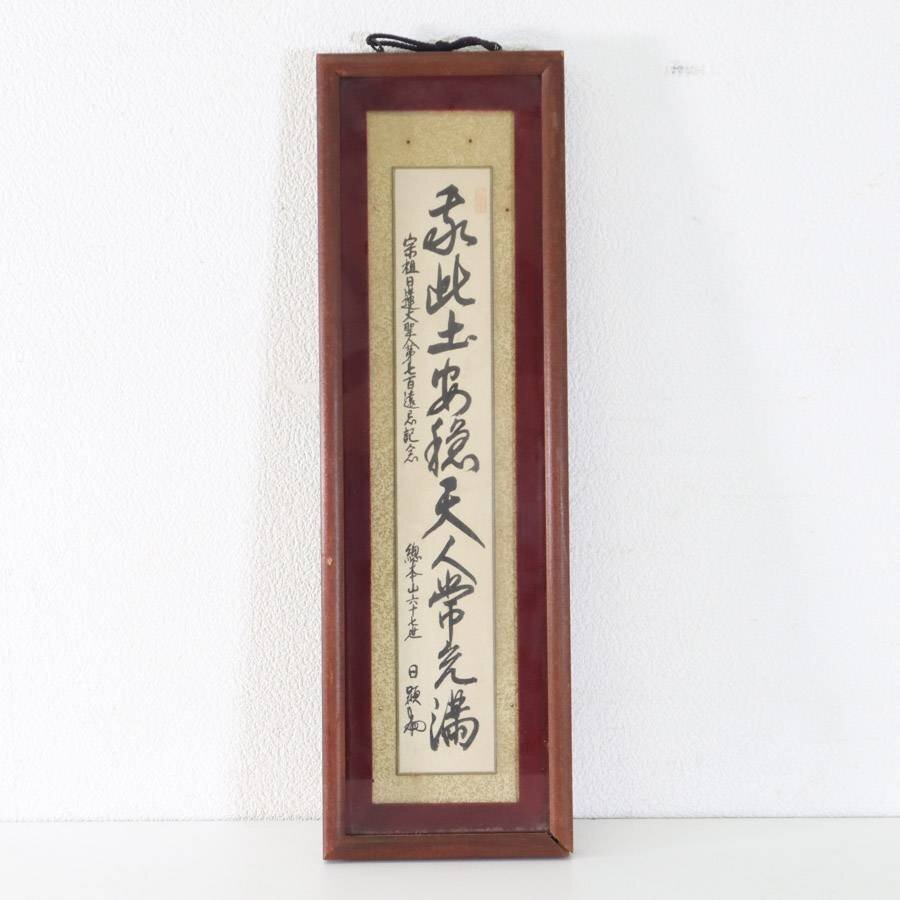 我此土安穏天人常充満
宗祖日蓮大聖人第七百遠忌記念
總本山六十七世 日顕